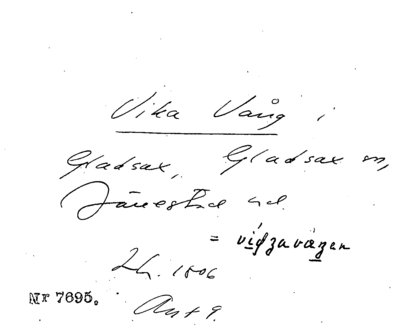 Vika Vång i
Gladsax, Gladsax sn,
Järrestad hd.
= vigzavåzen
Lh. 1806
Nr 7695.
Akt 9.